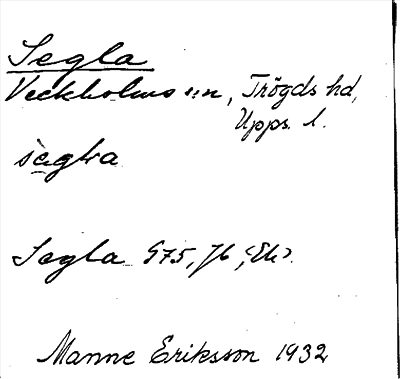 Segla
Veckholms sn, Trögds hd,
Upps. l.
sægla
Segla G75, Jb, Ek.
Manne Eriksson 1932